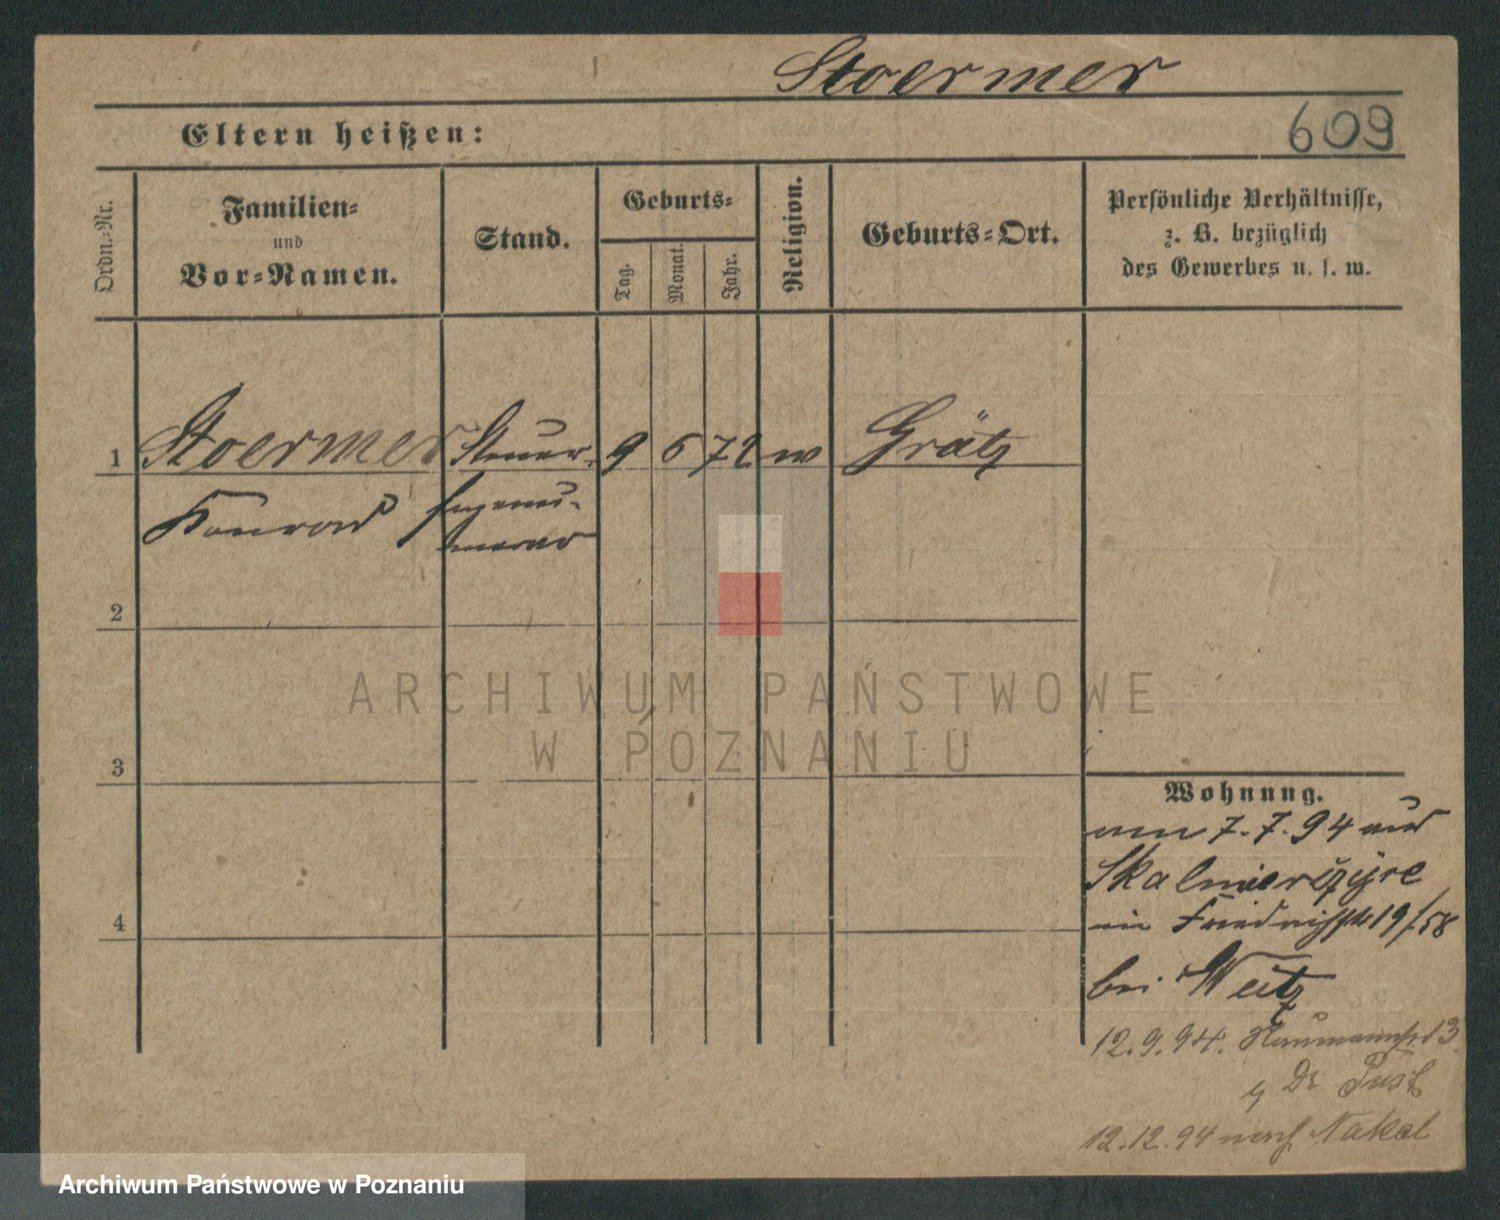 Stoermer
609
Eltern heißen:
Ordn.-Nr.
Familien-
und
Vor-Namen.
Stand.
Geburts-
Tag.
Monat.
Jahr.
Religion.
Geburts-Ort.
Persönliche Verhältnisse,
z. B. bezüglich
des Gewerbes u. s. w.
1
Stoermer
Konrad
Steuer
9 6 72
Grätz
2
3
4
ARCHIWUM PAŃSTWOWE
W POZNANIU
Wohnung.
7.7.94 aus
in 19/58
bei Weitz
12.9.94. Naumannstr 13
Dr
12.12.94 nach Nakel
Archiwum Państwowe w Poznaniu